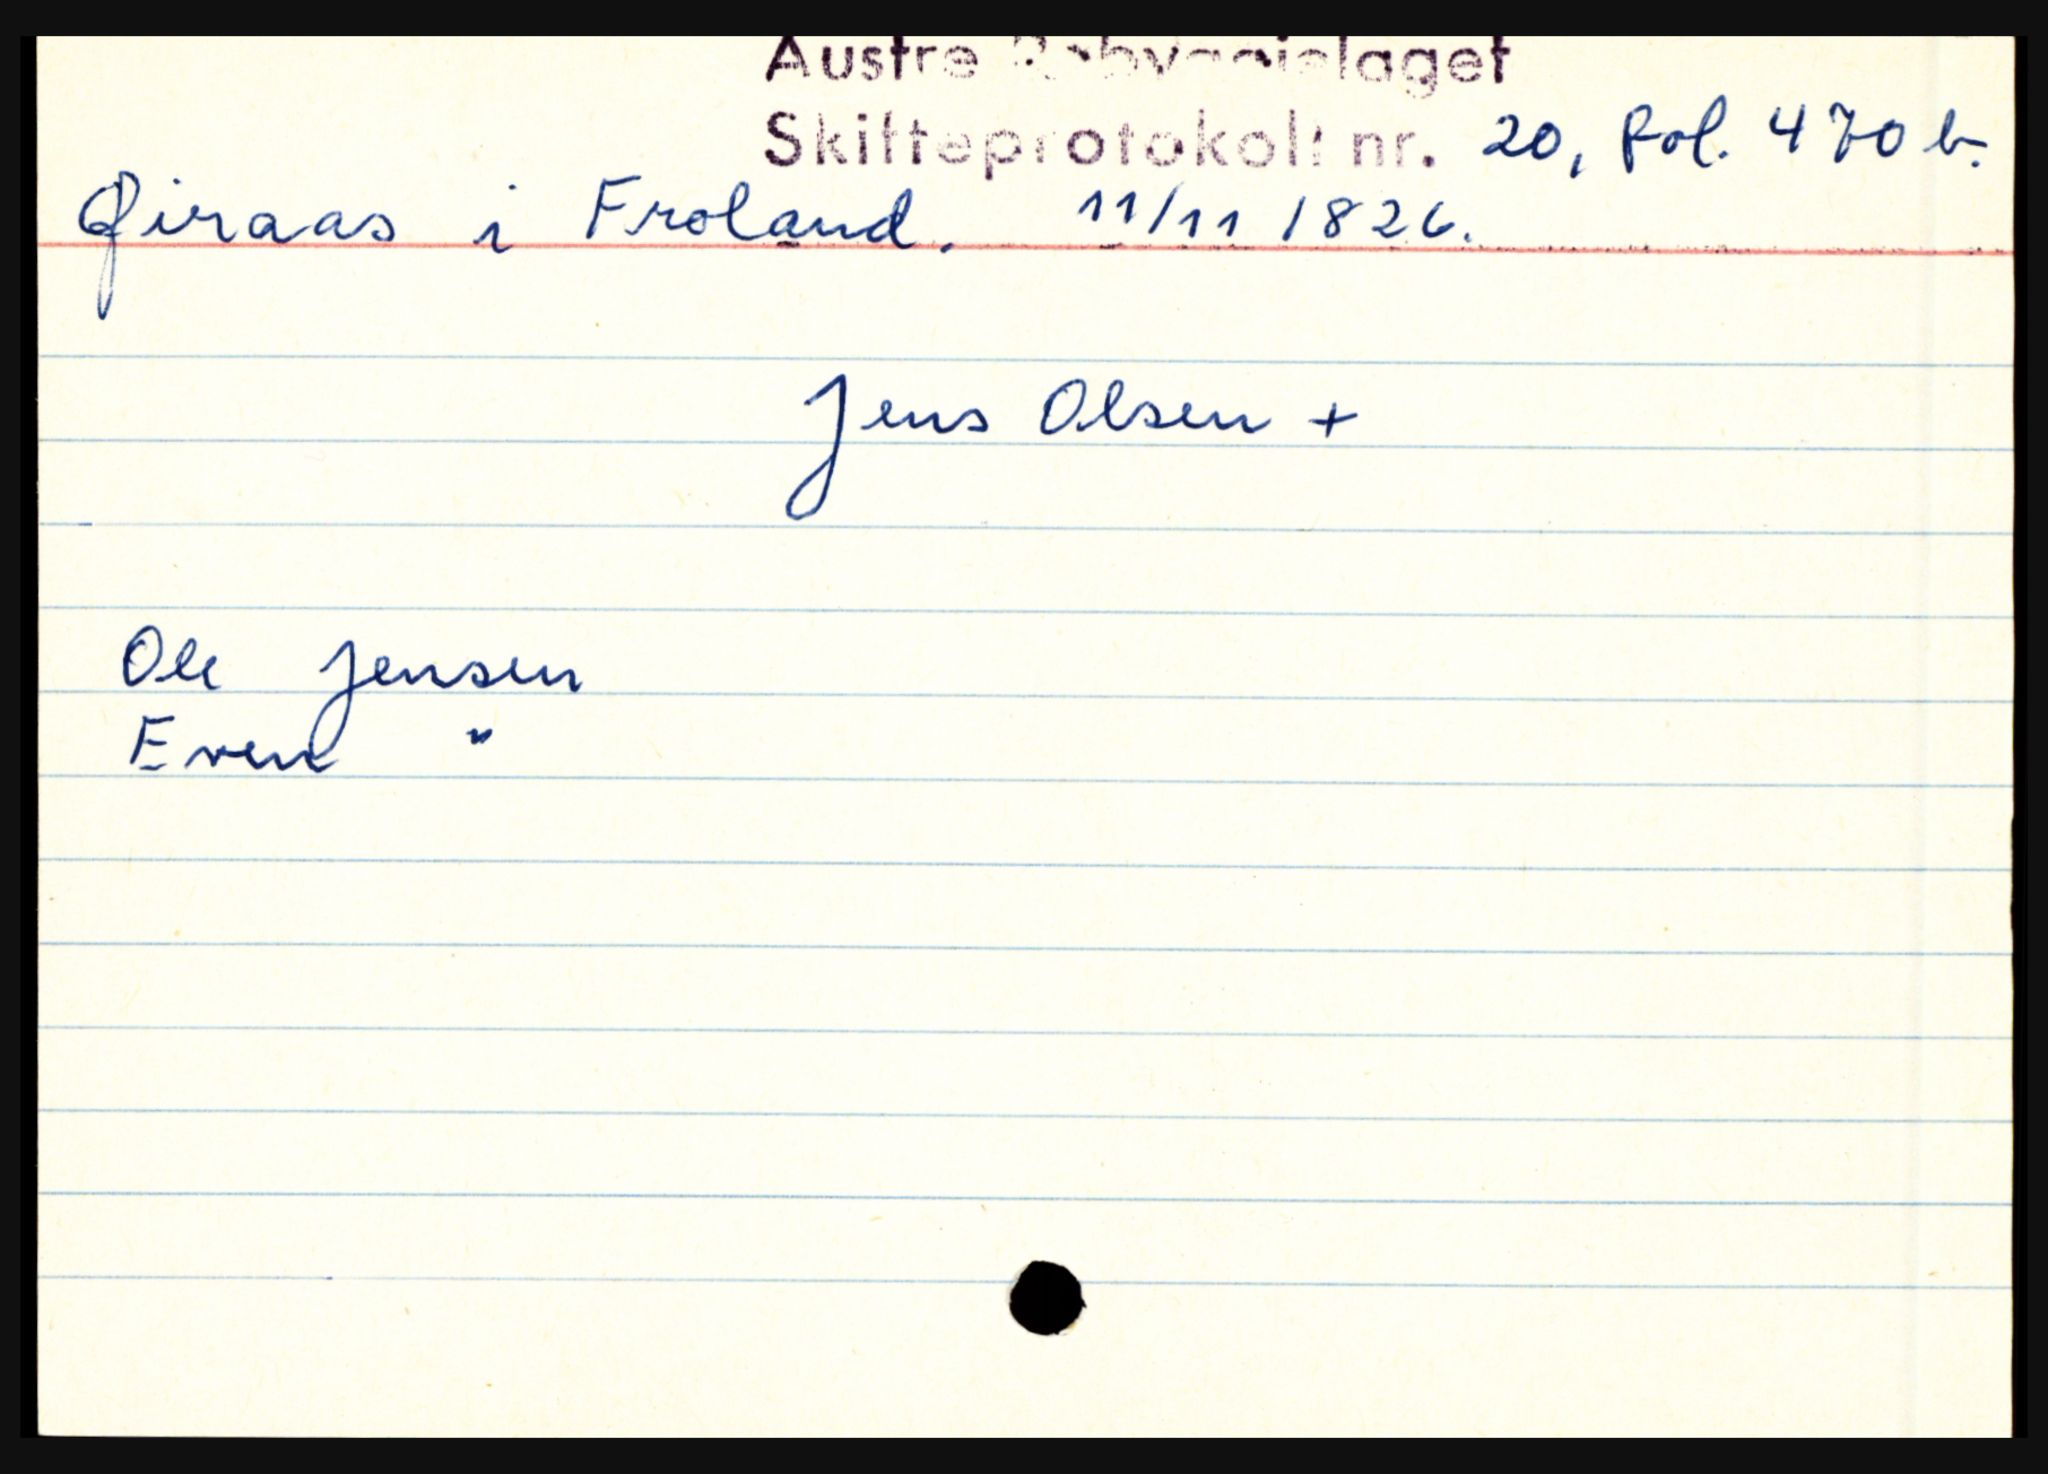 Austre Robyggjelaget
Skifteprotokoll nr. 20, fol. 470 b.
Øiraas i Froland. 11/11 1826.
Jens Olsen +
Ole Jensen
Even "